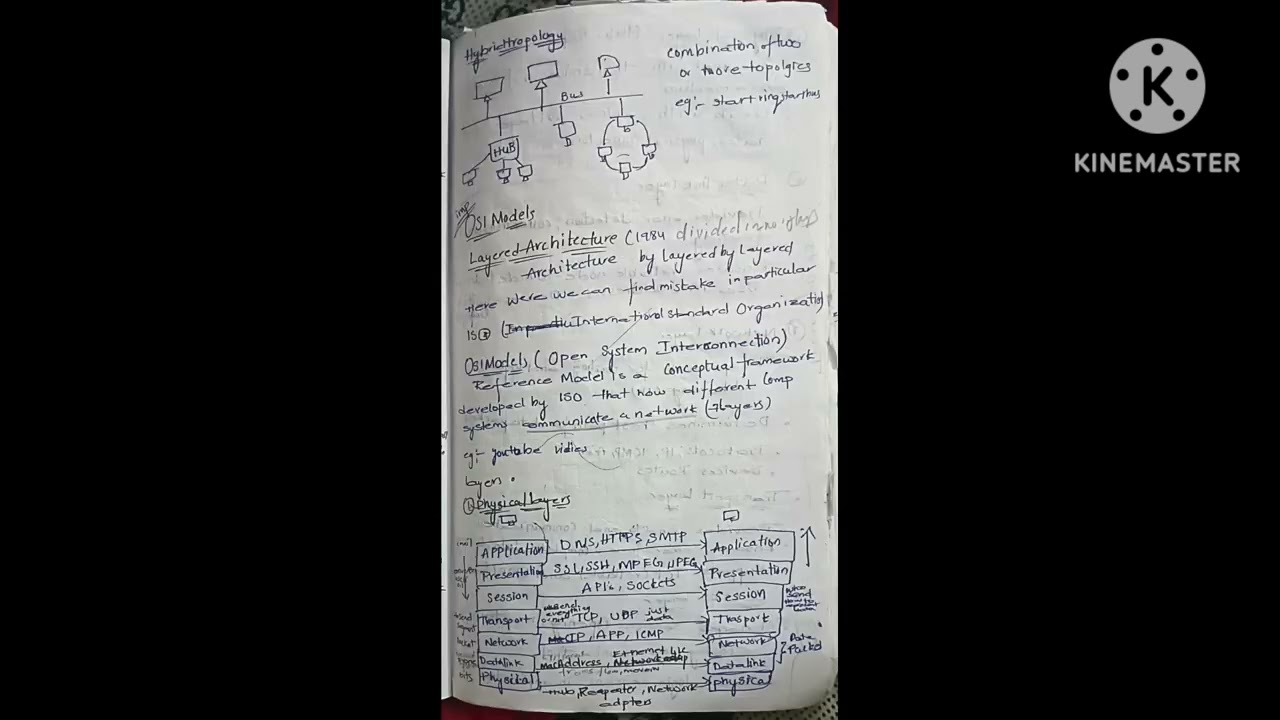 Hybrid tropology
combination of two
or more topolgies
eg:- start ring, star bus
Bus
HUB
imp
OSI Models
Layered Architecture (1984 divided
Architecture by Layered by Layered
Here were we can find mistake in particular
ISO (International standard Organization)
OSI Models (Open System Interconnection)
Reference Model is a conceptual framework
developed by ISO that how different comp
systems communicate a network (7 layers)
eg:- youtube vidies
layers.
① Physical layers
Application DNS, HTTPS, SMTP Application
Presentation SSL, SSH, MPEG, JPEG Presentation
Session API's, Sockets Session
Transport TCP, UDP just data Trasport
Network IP, APP, ICMP Network
Datalink Mac Address, Ethernet Datalink
Physical Hub, Reapeater, Network physical
adpters
bits
Data
Packed
K
KINEMASTER